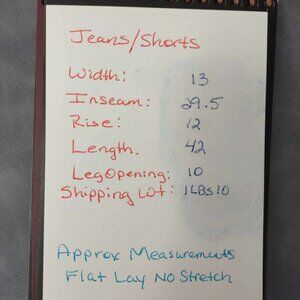 Jeans/Shorts
Width: 13
Inseam: 29.5
Rise: 12
Length. 42
Leg Opening: 10
Shipping Wt: 1LBS10
Approx Measurements
Flat Lay No Stretch